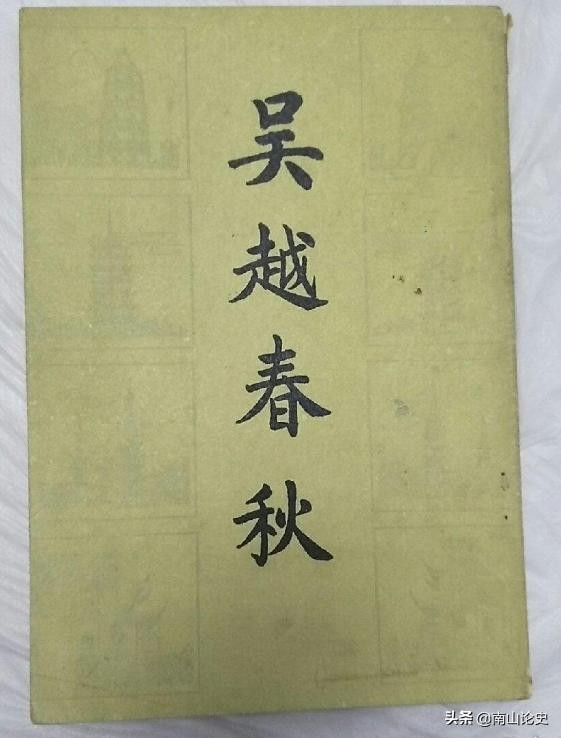 吴越春秋
头条 @南山论史